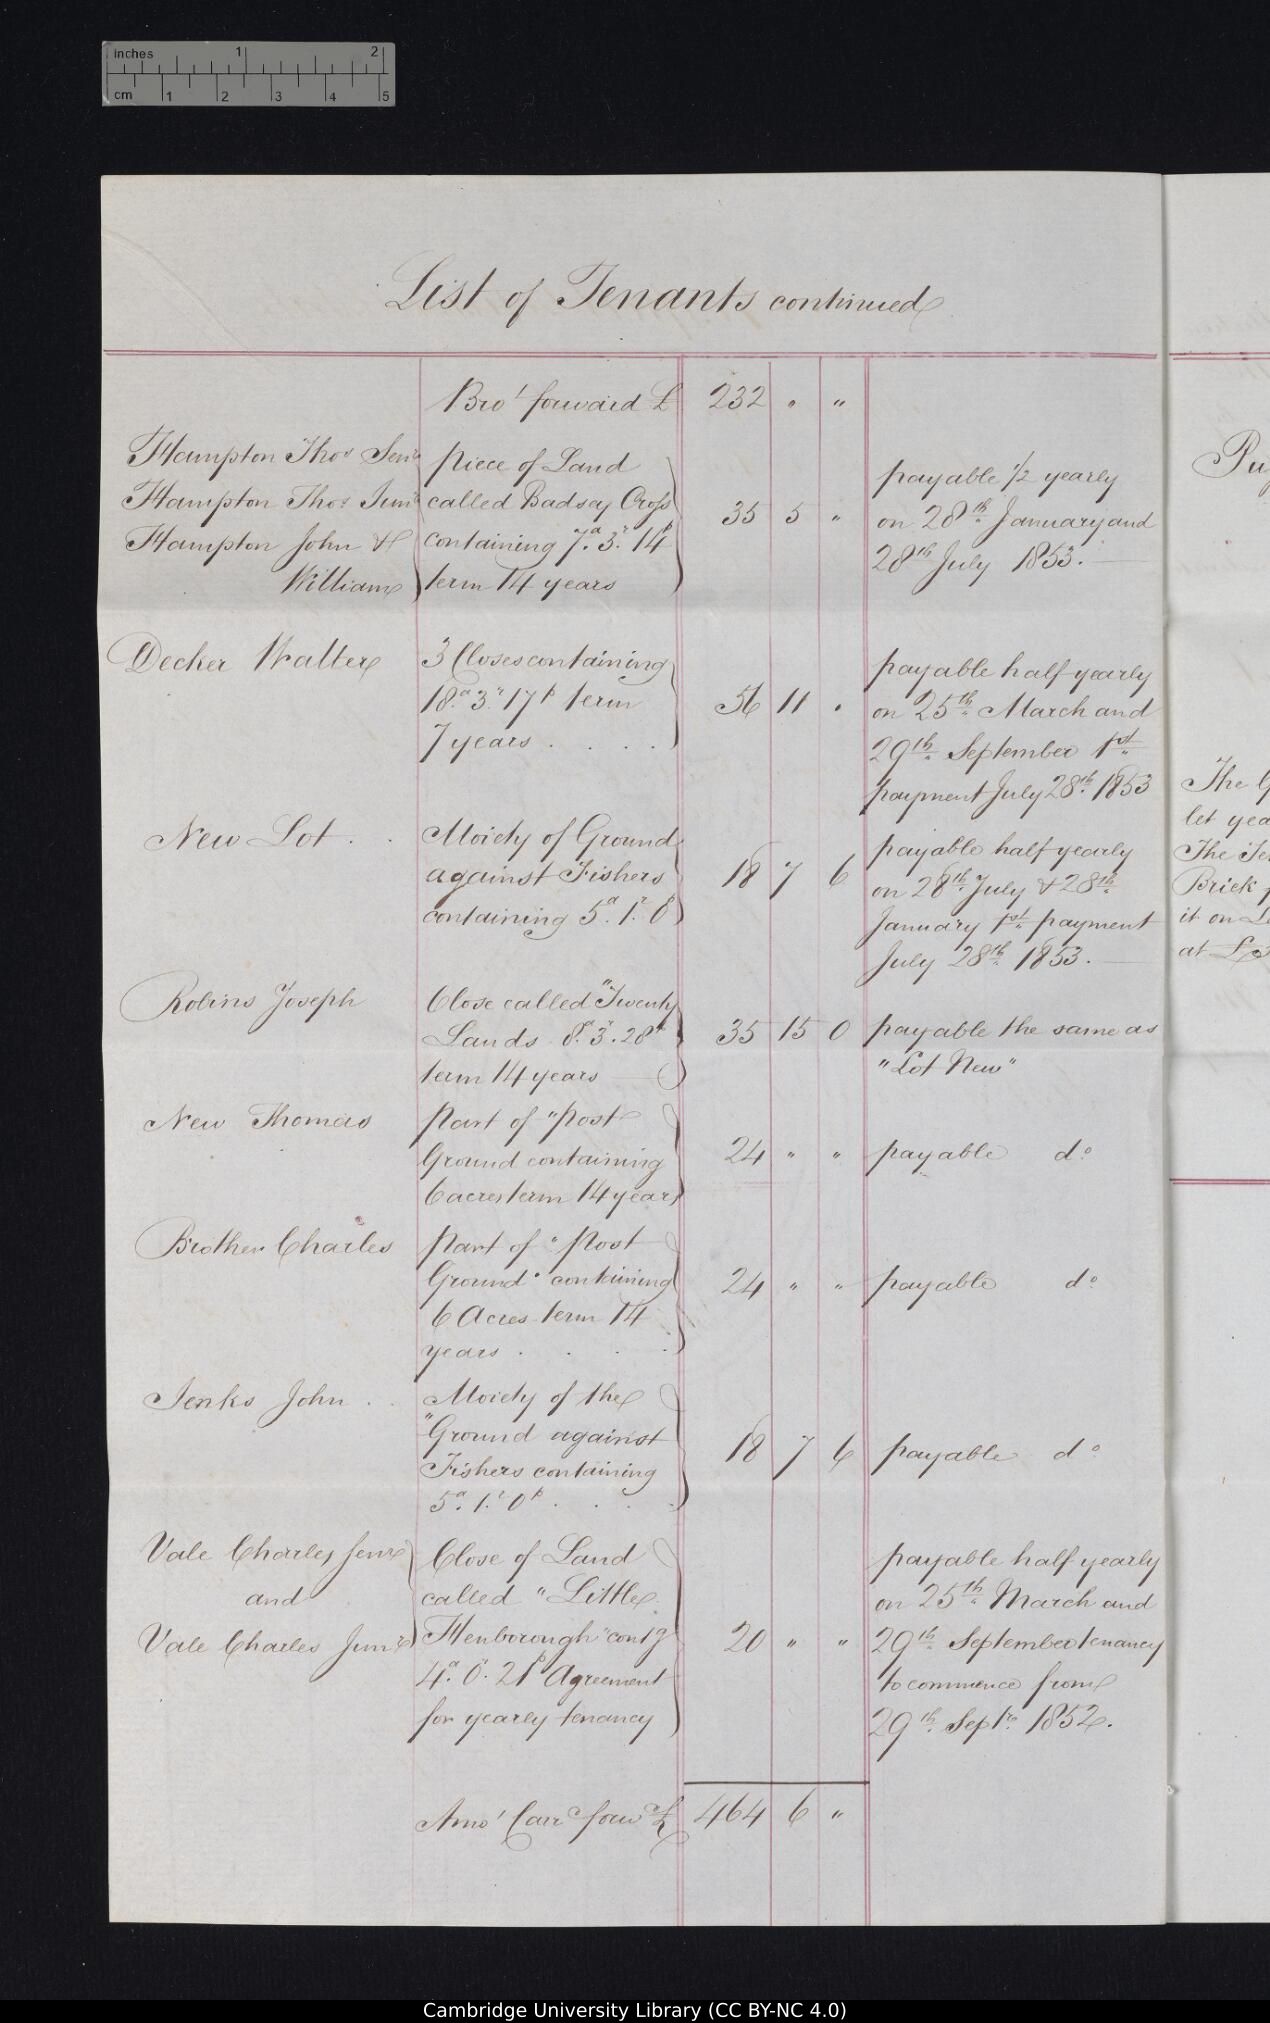 inches 1 2
cm 1 2 3 4 5
List of Tenants continued
Bro.t forward £ 232 " "
Hampton Thos Senr
Hampton Thos Junr
Hampton John &
William
piece of Land
called Badsey Cross
containing 7.a 3.r 14p
term 14 years
35 5 "
payable 1/2 yearly
on 28th January and
28th July 1853.
Decker Walter
3 Closes containing
18.a 3.r 17p term
7 years . . . .
56 11 "
payable half yearly
on 25th March and
29th September 1st
payment July 28th 1853
New Lot . .
Moiety of Ground
against Fishers
containing 5.a 1.r 0p
18 7 6
payable half yearly
on 28th July & 28th
January 1st payment
July 28th 1853.
Robins Joseph
Close called "Twenty
Lands 8.a 3.r 28p
term 14 years
35 15 0
payable the same as
"Lot New"
New Thomas
Part of "Post
Ground containing
6 acres term 14 years
24 " "
payable do
Brother Charles
Part of "Post
Ground" containing
6 Acres term 14
years . . . .
24 " "
payable do
Jenks John . .
Moiety of the
"Ground against
Fishers containing
5.a 1.r 0p . . .
18 7 6
payable do
Vale Charles Senr
and
Vale Charles Junr
Close of Land
called "Little
Henborough" contg
4.a 0.r 21p Agreement
for yearly tenancy
20 " "
payable half yearly
on 25th March and
29th September tenancy
to commence from
29th Septr 1852.
Amot Carrd forwd £ 464 6 "
The
let yea
The Te
Brick
it on
at £3
Cambridge University Library (CC BY-NC 4.0)